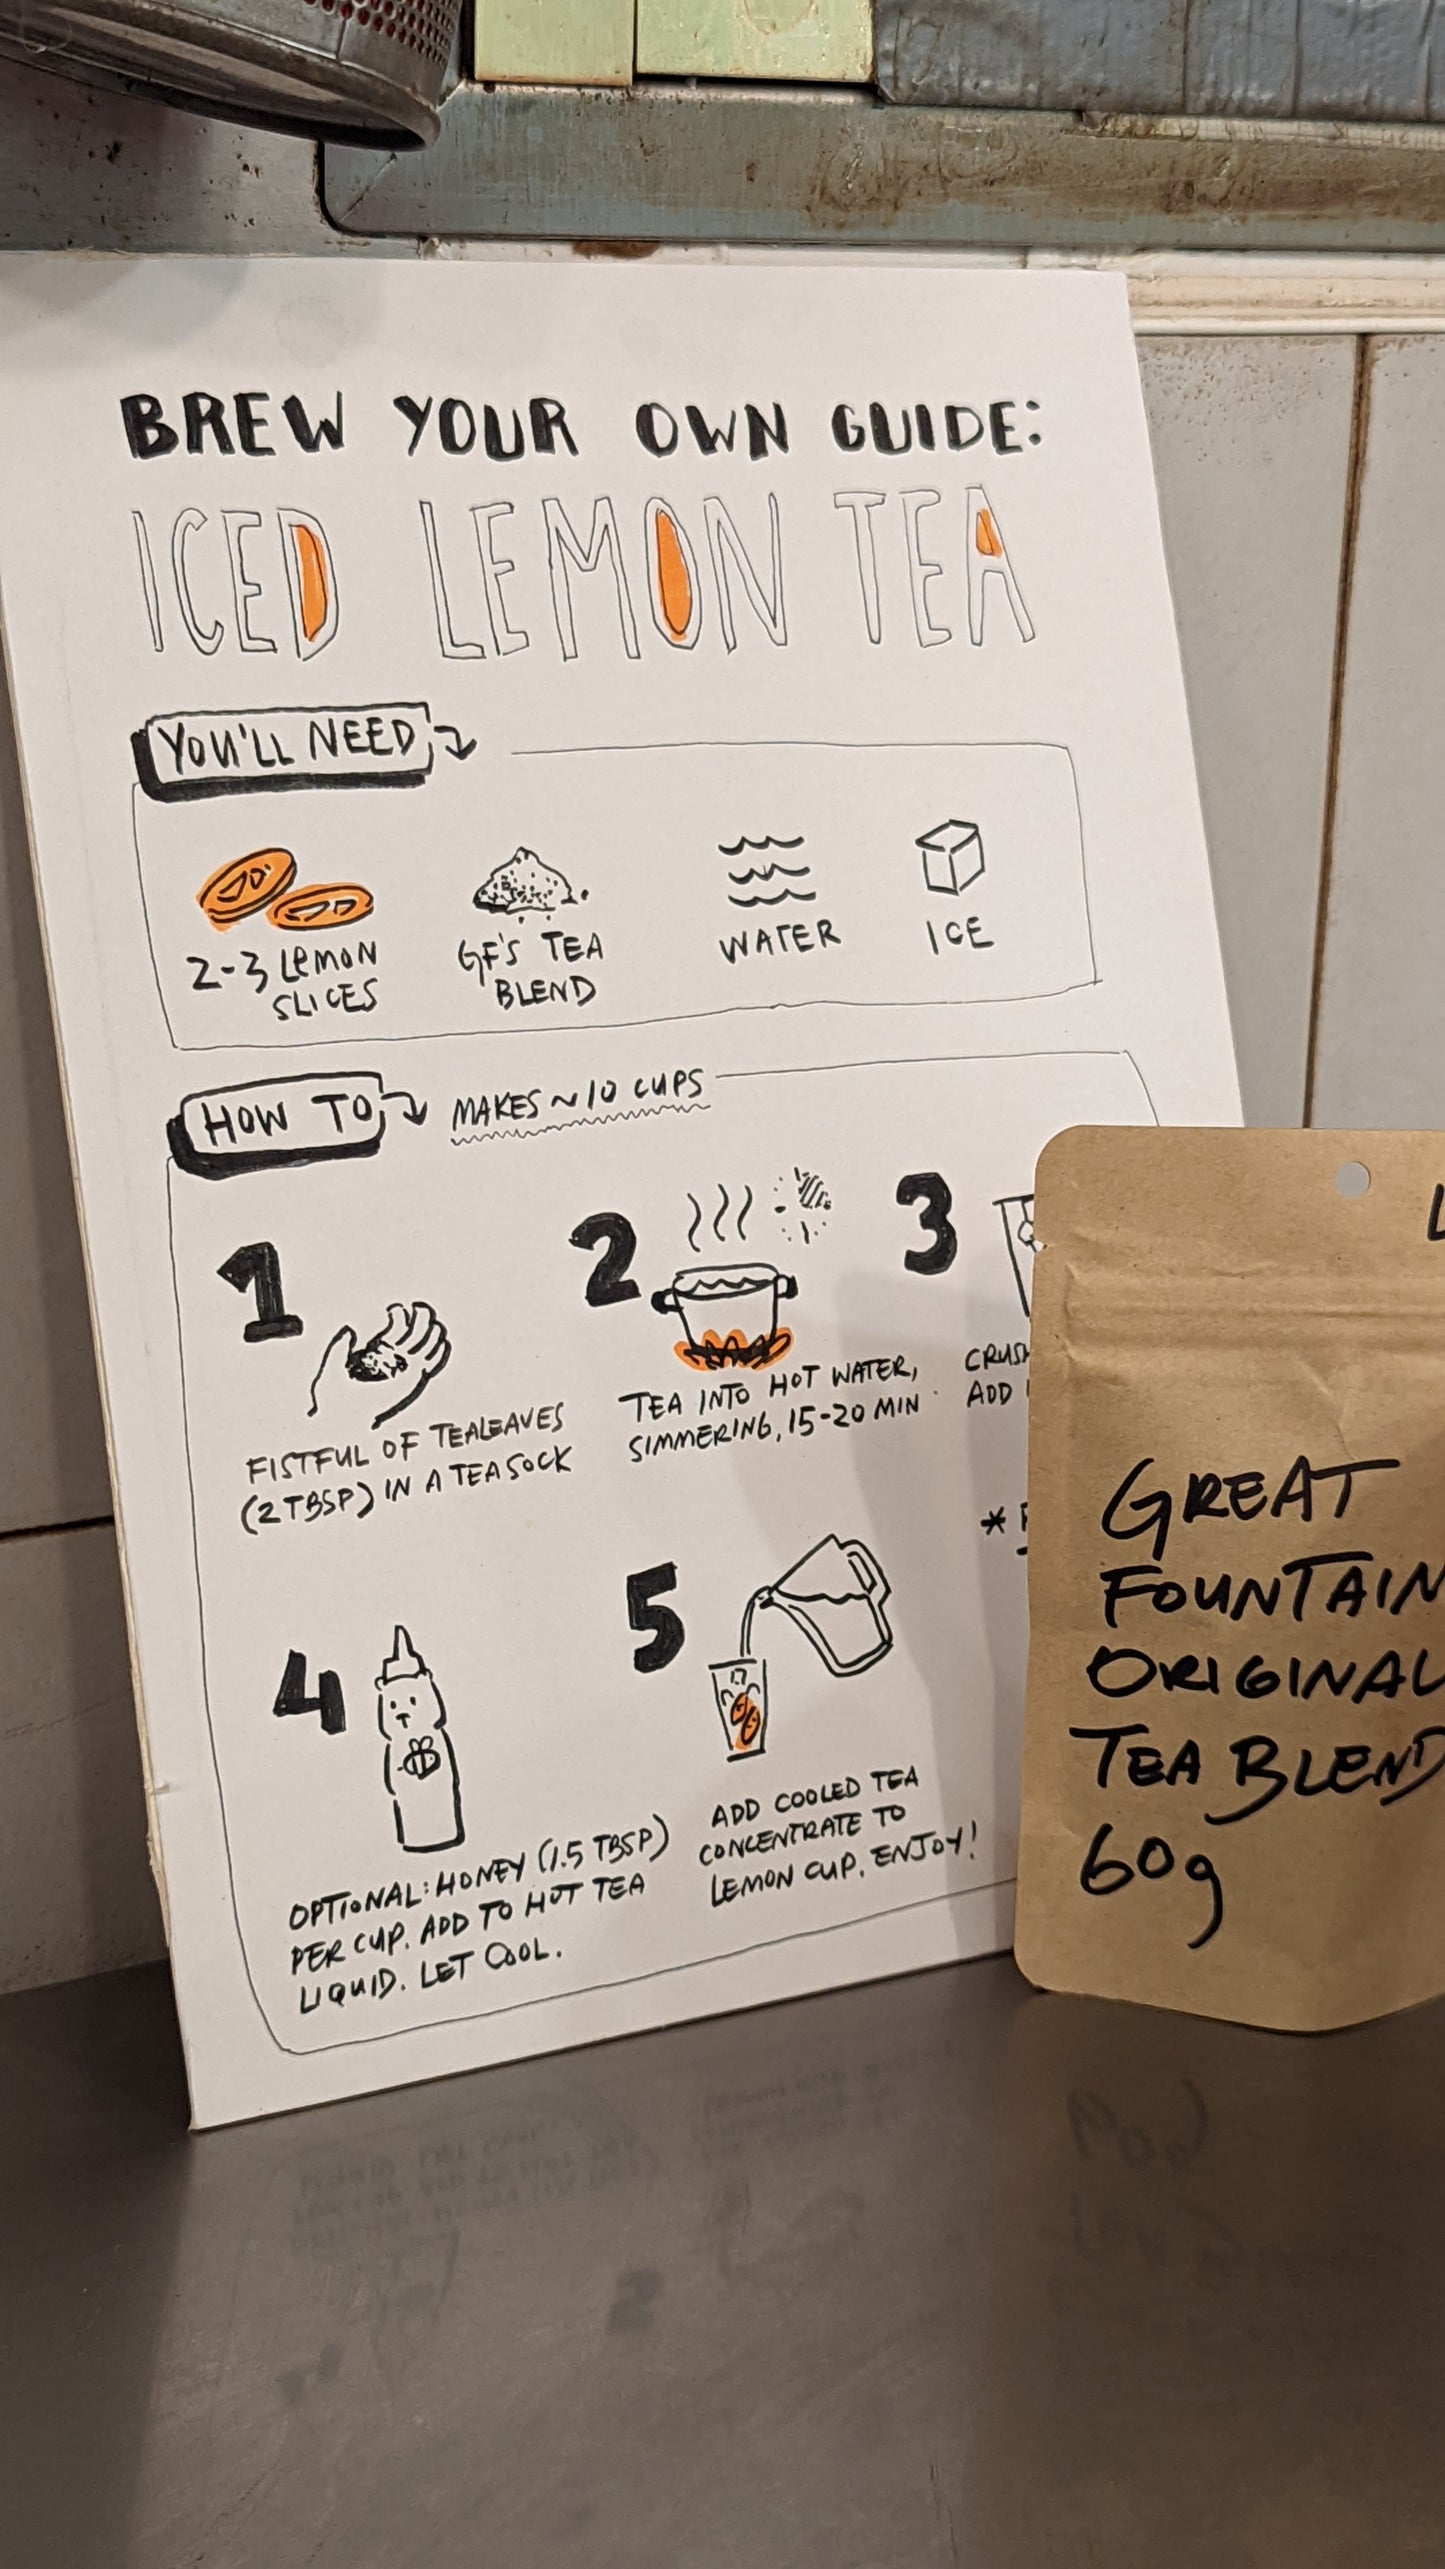 BREW YOUR OWN GUIDE:
ICED LEMON TEA
YOU'LL NEED
2-3 LEMON
SLICES
GF'S TEA
BLEND
WATER
ICE
HOW TO
MAKES ~10 CUPS
1
FISTFUL OF TEALEAVES
(2 TBSP) IN A TEA SOCK
2
TEA INTO HOT WATER,
SIMMERING, 15-20 MIN
3
ADD
*
4
OPTIONAL: HONEY (1.5 TBSP)
PER CUP. ADD TO HOT TEA
LIQUID. LET COOL.
5
ADD COOLED TEA
CONCENTRATE TO
LEMON CUP. ENJOY!
GREAT
FOUNTAIN
ORIGINAL
TEA BLEND
60g